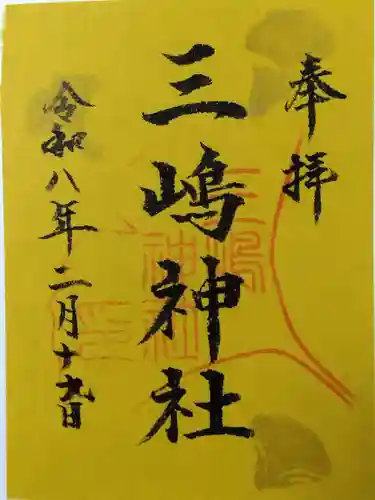 奉拝
三嶋神社
令和八年二月十九日
三嶋
神社